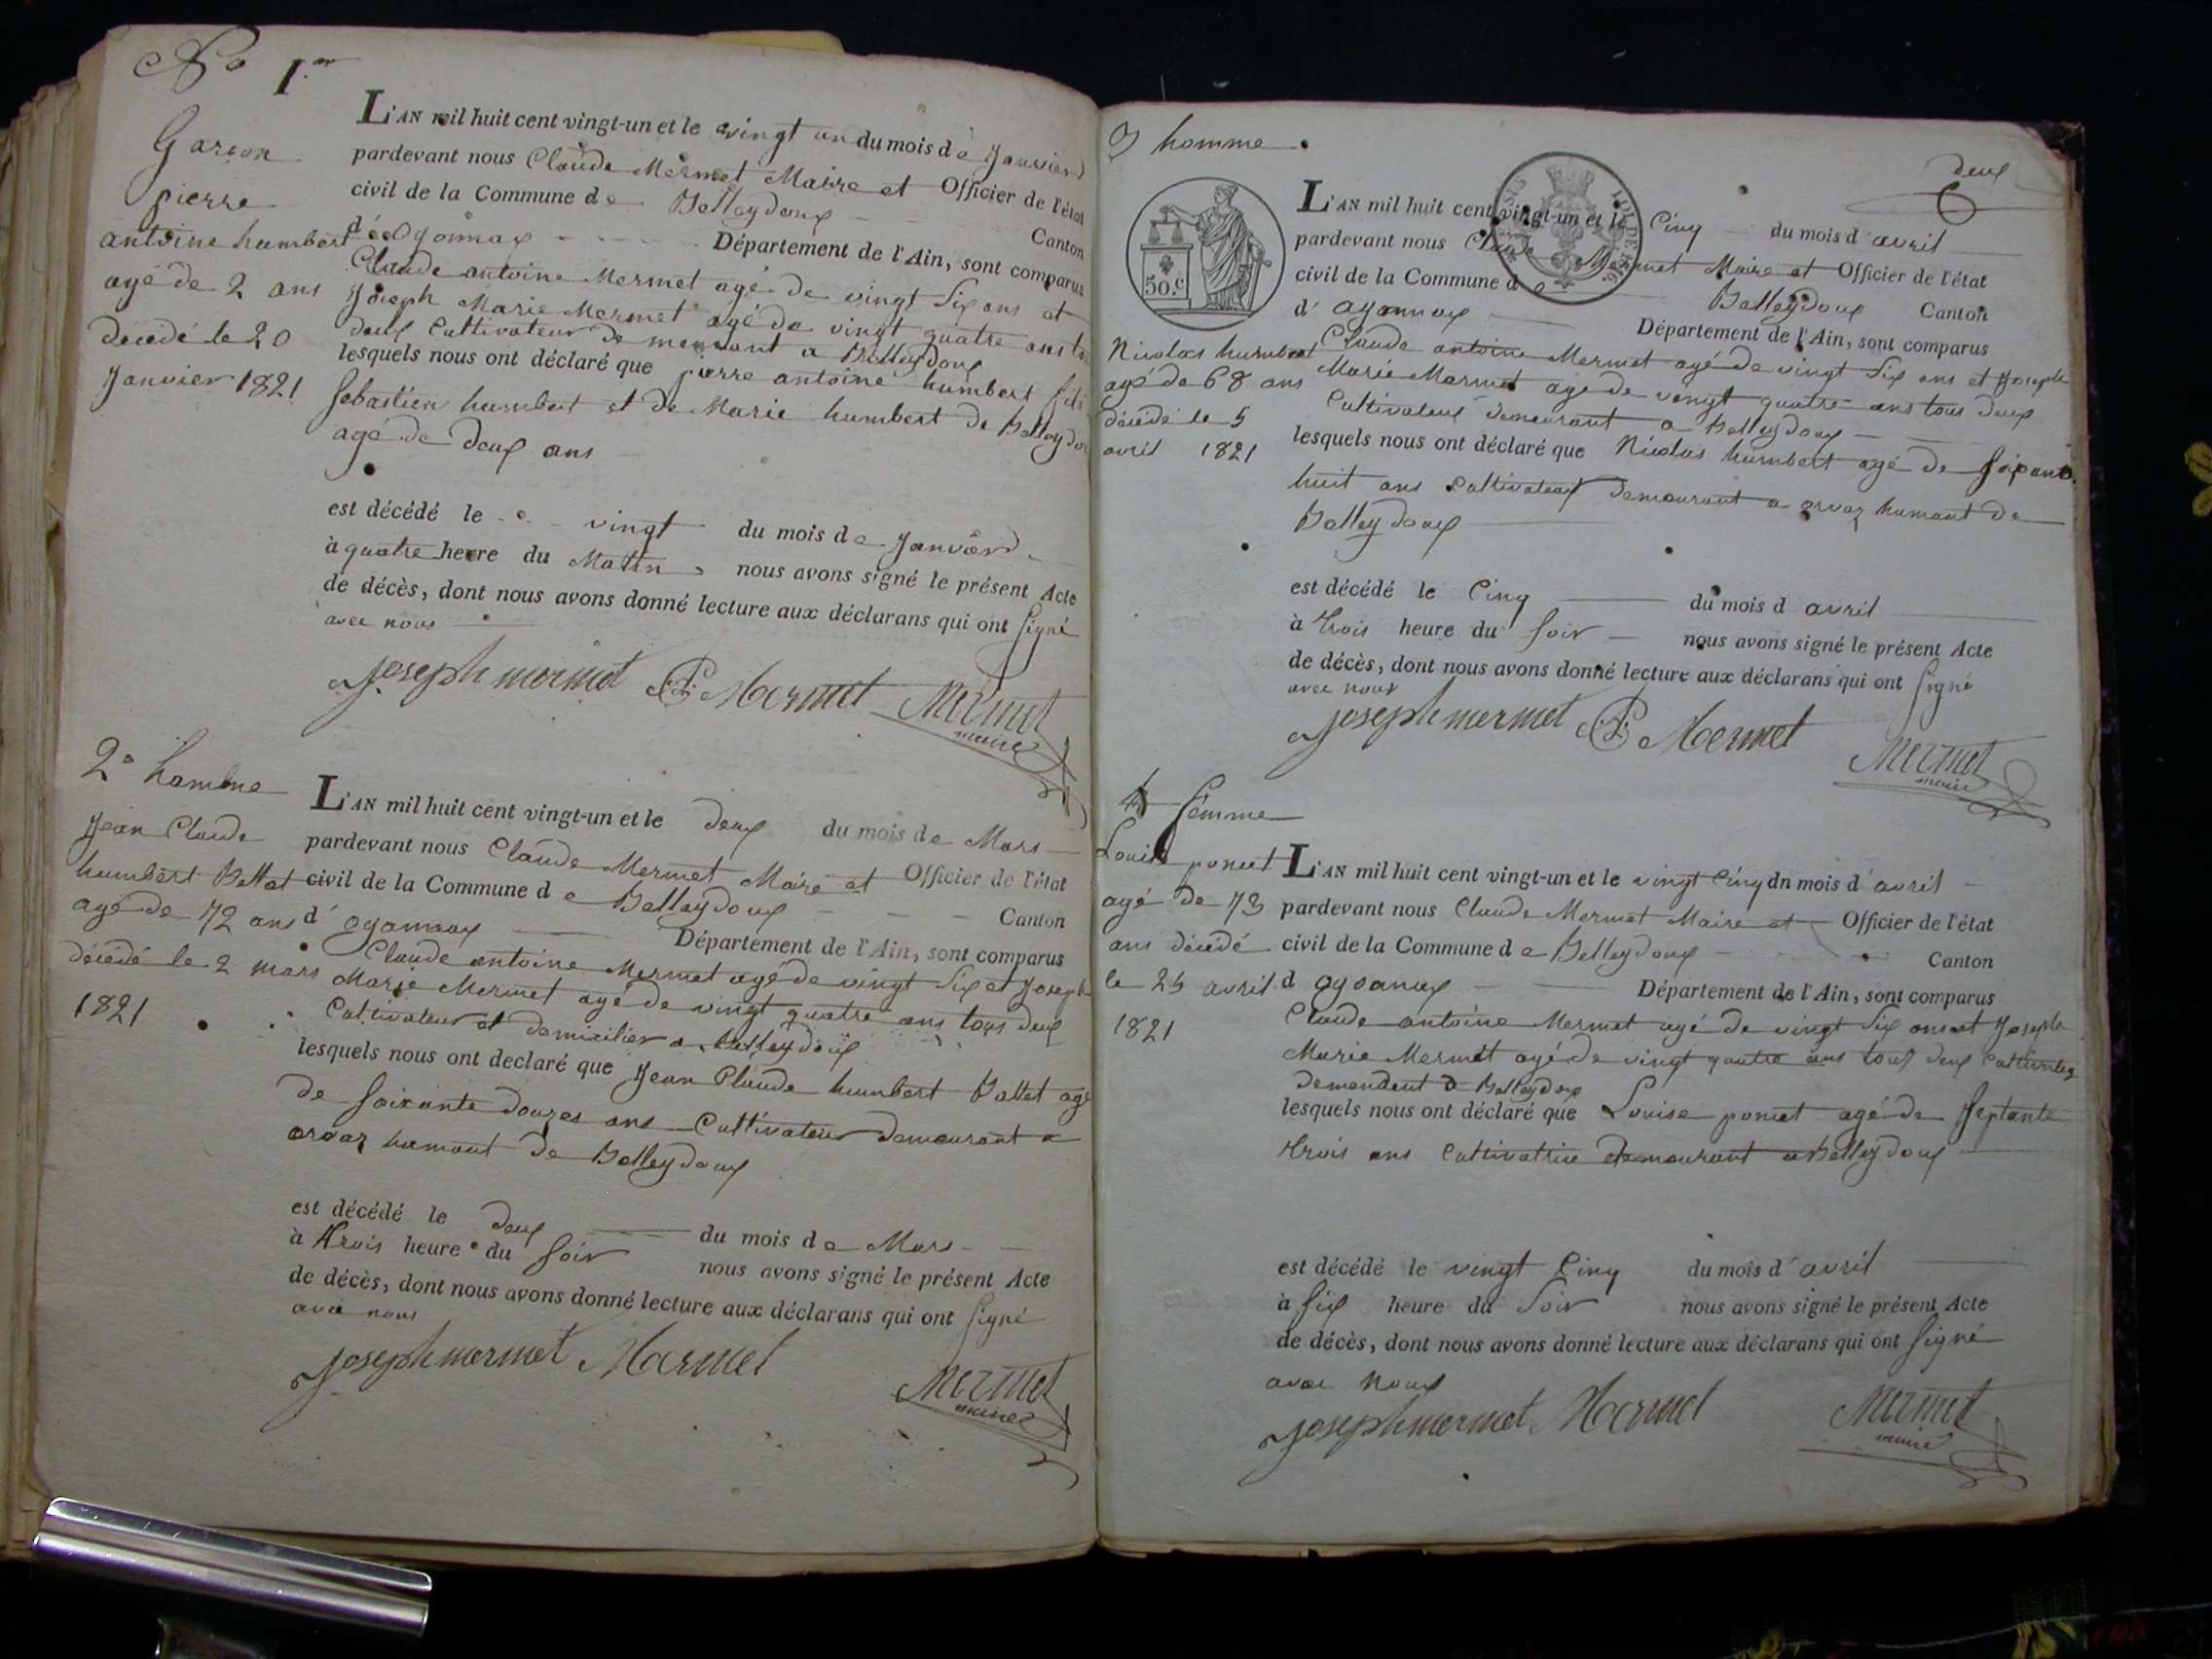 No 1er
Garçon
pierre
antoine humbert
agé de 2 ans
décédé le 20
Janvier 1821
L'AN mil huit cent vingt-un et le vingt un du mois de Janvier
pardevant nous Claude Mermet Maire et Officier de l'état
civil de la Commune de Belleydoux Canton
d'Oyonnax Département de l'Ain, sont comparus
Claude antoine Mermet agé de vingt Six ans et
Joseph Marie Mermet agé de vingt quatre ans
deux Cultivateur a Belleydoux
lesquels nous ont déclaré que pierre antoine humbert fils
Sebastien humbert et de Marie humbert de Belleydoux
agé de deux ans
est décédé le vingt du mois de Janvier
à quatre heure du Matin nous avons signé le présent Acte
de décès, dont nous avons donné lecture aux déclarans qui ont Signé
avec nous
joseph mermet Mermet Mermet
maire
2e homme
Jean Claude
humbert Battet
agé de 72 ans
décédé le 2 mars
1821
L'AN mil huit cent vingt-un et le deux du mois de Mars
pardevant nous Claude Mermet Maire et Officier de l'état
civil de la Commune de Belleydoux Canton
d'oyonnax Département de l'Ain, sont comparus
Claude antoine Mermet agé de vingt Six et Joseph
Marie Mermet agé de vingt quatre ans tous deux
Cultivateur et domicilier a Belleydoux
lesquels nous ont declaré que Jean Claude humbert Battet agé
de Soixante douzes ans Cultivateur demeurant a
orvaz hamaut de Belleydoux
est décédé le deux du mois de Mars
à trois heure du Soir nous avons signé le présent Acte
de décès, dont nous avons donné lecture aux déclarans qui ont Signé
avec nous
joseph mermet Mermet Mermet
maire
deux
3 homme
Nicolas humbert
agé de 68 ans
décédé le 5
avril 1821
50.c
L'AN mil huit cent vingt-un et le Cinq du mois d'avril
pardevant nous Claude Mermet Maire et Officier de l'état
civil de la Commune de Belleydoux Canton
d'oyonnax Département de l'Ain, sont comparus
Claude antoine Mermet agé de vingt Six ans et Joseph
Marie Mermet agé de vingt quatre ans tous deux
Cultivateur demeurant a Belleydoux
lesquels nous ont déclaré que Nicolas humbert agé de Soixante
huit ans Cultivateur demeurant a orvaz hamaut de
Belleydoux
est décédé le Cinq du mois d avril
à trois heure du Soir nous avons signé le présent Acte
de décès, dont nous avons donné lecture aux déclarans qui ont Signé
avec nous
joseph mermet Mermet
Mermet
maire
4 femme
Louise poncet
agé de 73
ans décédé
le 25 avril
1821
L'AN mil huit cent vingt-un et le vingt Cinq dn mois d'avril
pardevant nous Claude Mermet Maire et Officier de l'état
civil de la Commune de Belleydoux Canton
d oyoanux Département de l'Ain, sont comparus
Claude antoine Mermet agé de vingt Six ans et Joseph
Marie Mermet agé de vingt quatre ans tous deux
a Belleydoux
lesquels nous ont déclaré que Louise poncet agé de Septante
trois ans Cultivatrice demeurant a Belleydoux
est décédé le vingt Cinq du mois d'avril
à Six heure du Soir nous avons signé le présent Acte
de décès, dont nous avons donné lecture aux déclarans qui ont Signé
avec nous
joseph mermet Mermet Mermet
maire